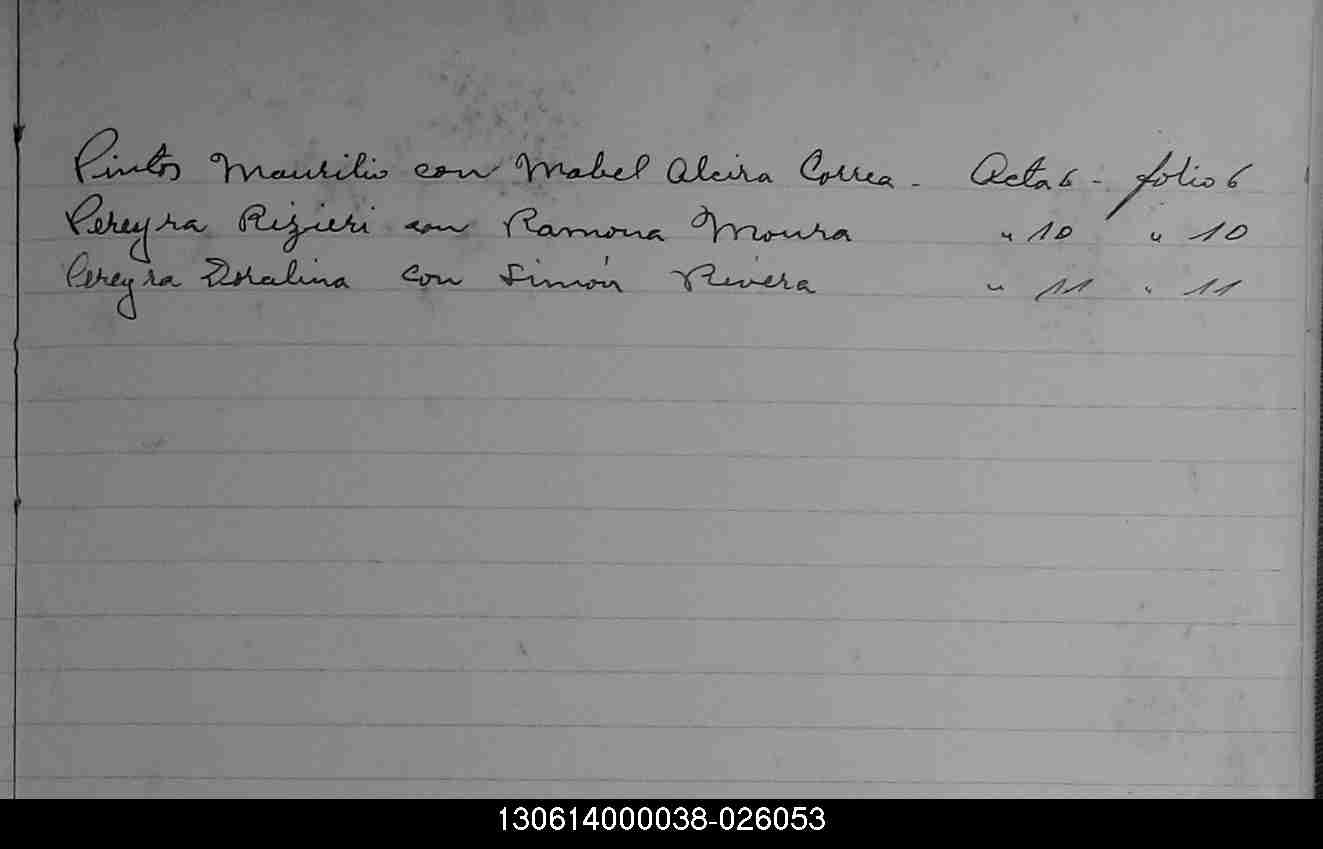 Pintos Maurilio con Mabel Alcira Correa - Acta 6 - folio 6
Pereyra Rizieri con Ramona Moura " 10 " 10
Pereyra Doralina con Simón Rivera " 11 " 11
130614000038-026053